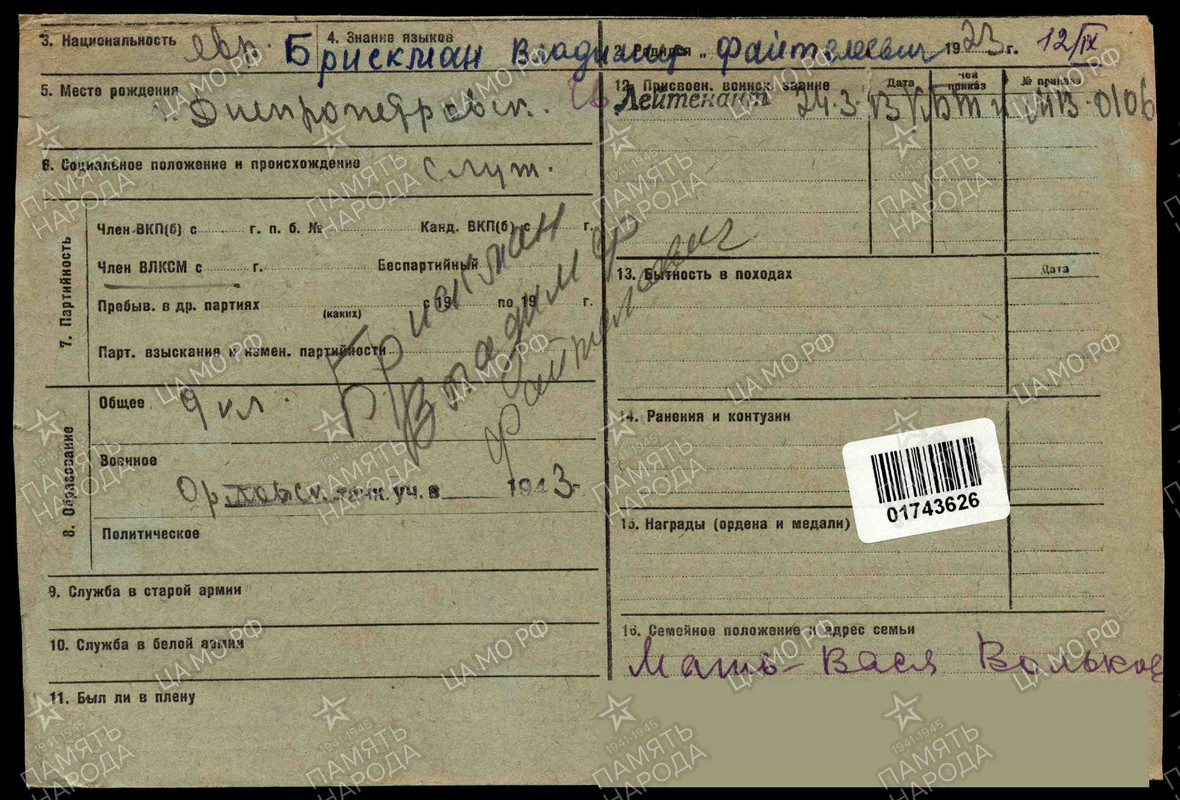 3. Национальность евр. 4. Знание языков
Брискман Владимир Файтелевич
2. Родился „ 1923 г. 12/IX
5. Место рождения г. Днепропетровск.
6. Социальное положение и происхождение служ.
7. Партийность
Член ВКП(б) с г. п. б. № Канд. ВКП(б) с г.
Член ВЛКСМ с г. Беспартийный
Пребыв. в др. партиях (каких) с 19 по 19 г.
Парт. взыскания и измен. партийности
Брискман
Владимир
Файтелович
8. Образование
Общее 9 кл.
Военное
Орловск. танк. уч. в 1943
Политическое
9. Служба в старой армии
10. Служба в белой армии
11. Был ли в плену
12. Присвоен. воинск. звание Дата Чей приказ № приказа
Лейтенант 24.3. МВ 0106
13. Бытность в походах Дата
14. Ранения и контузии
01743626
15. Награды (ордена и медали)
16. Семейное положение и адрес семьи
Мать - Вася Вольков
ЦАМО.РФ
1941-1945
ПАМЯТЬ НАРОДА